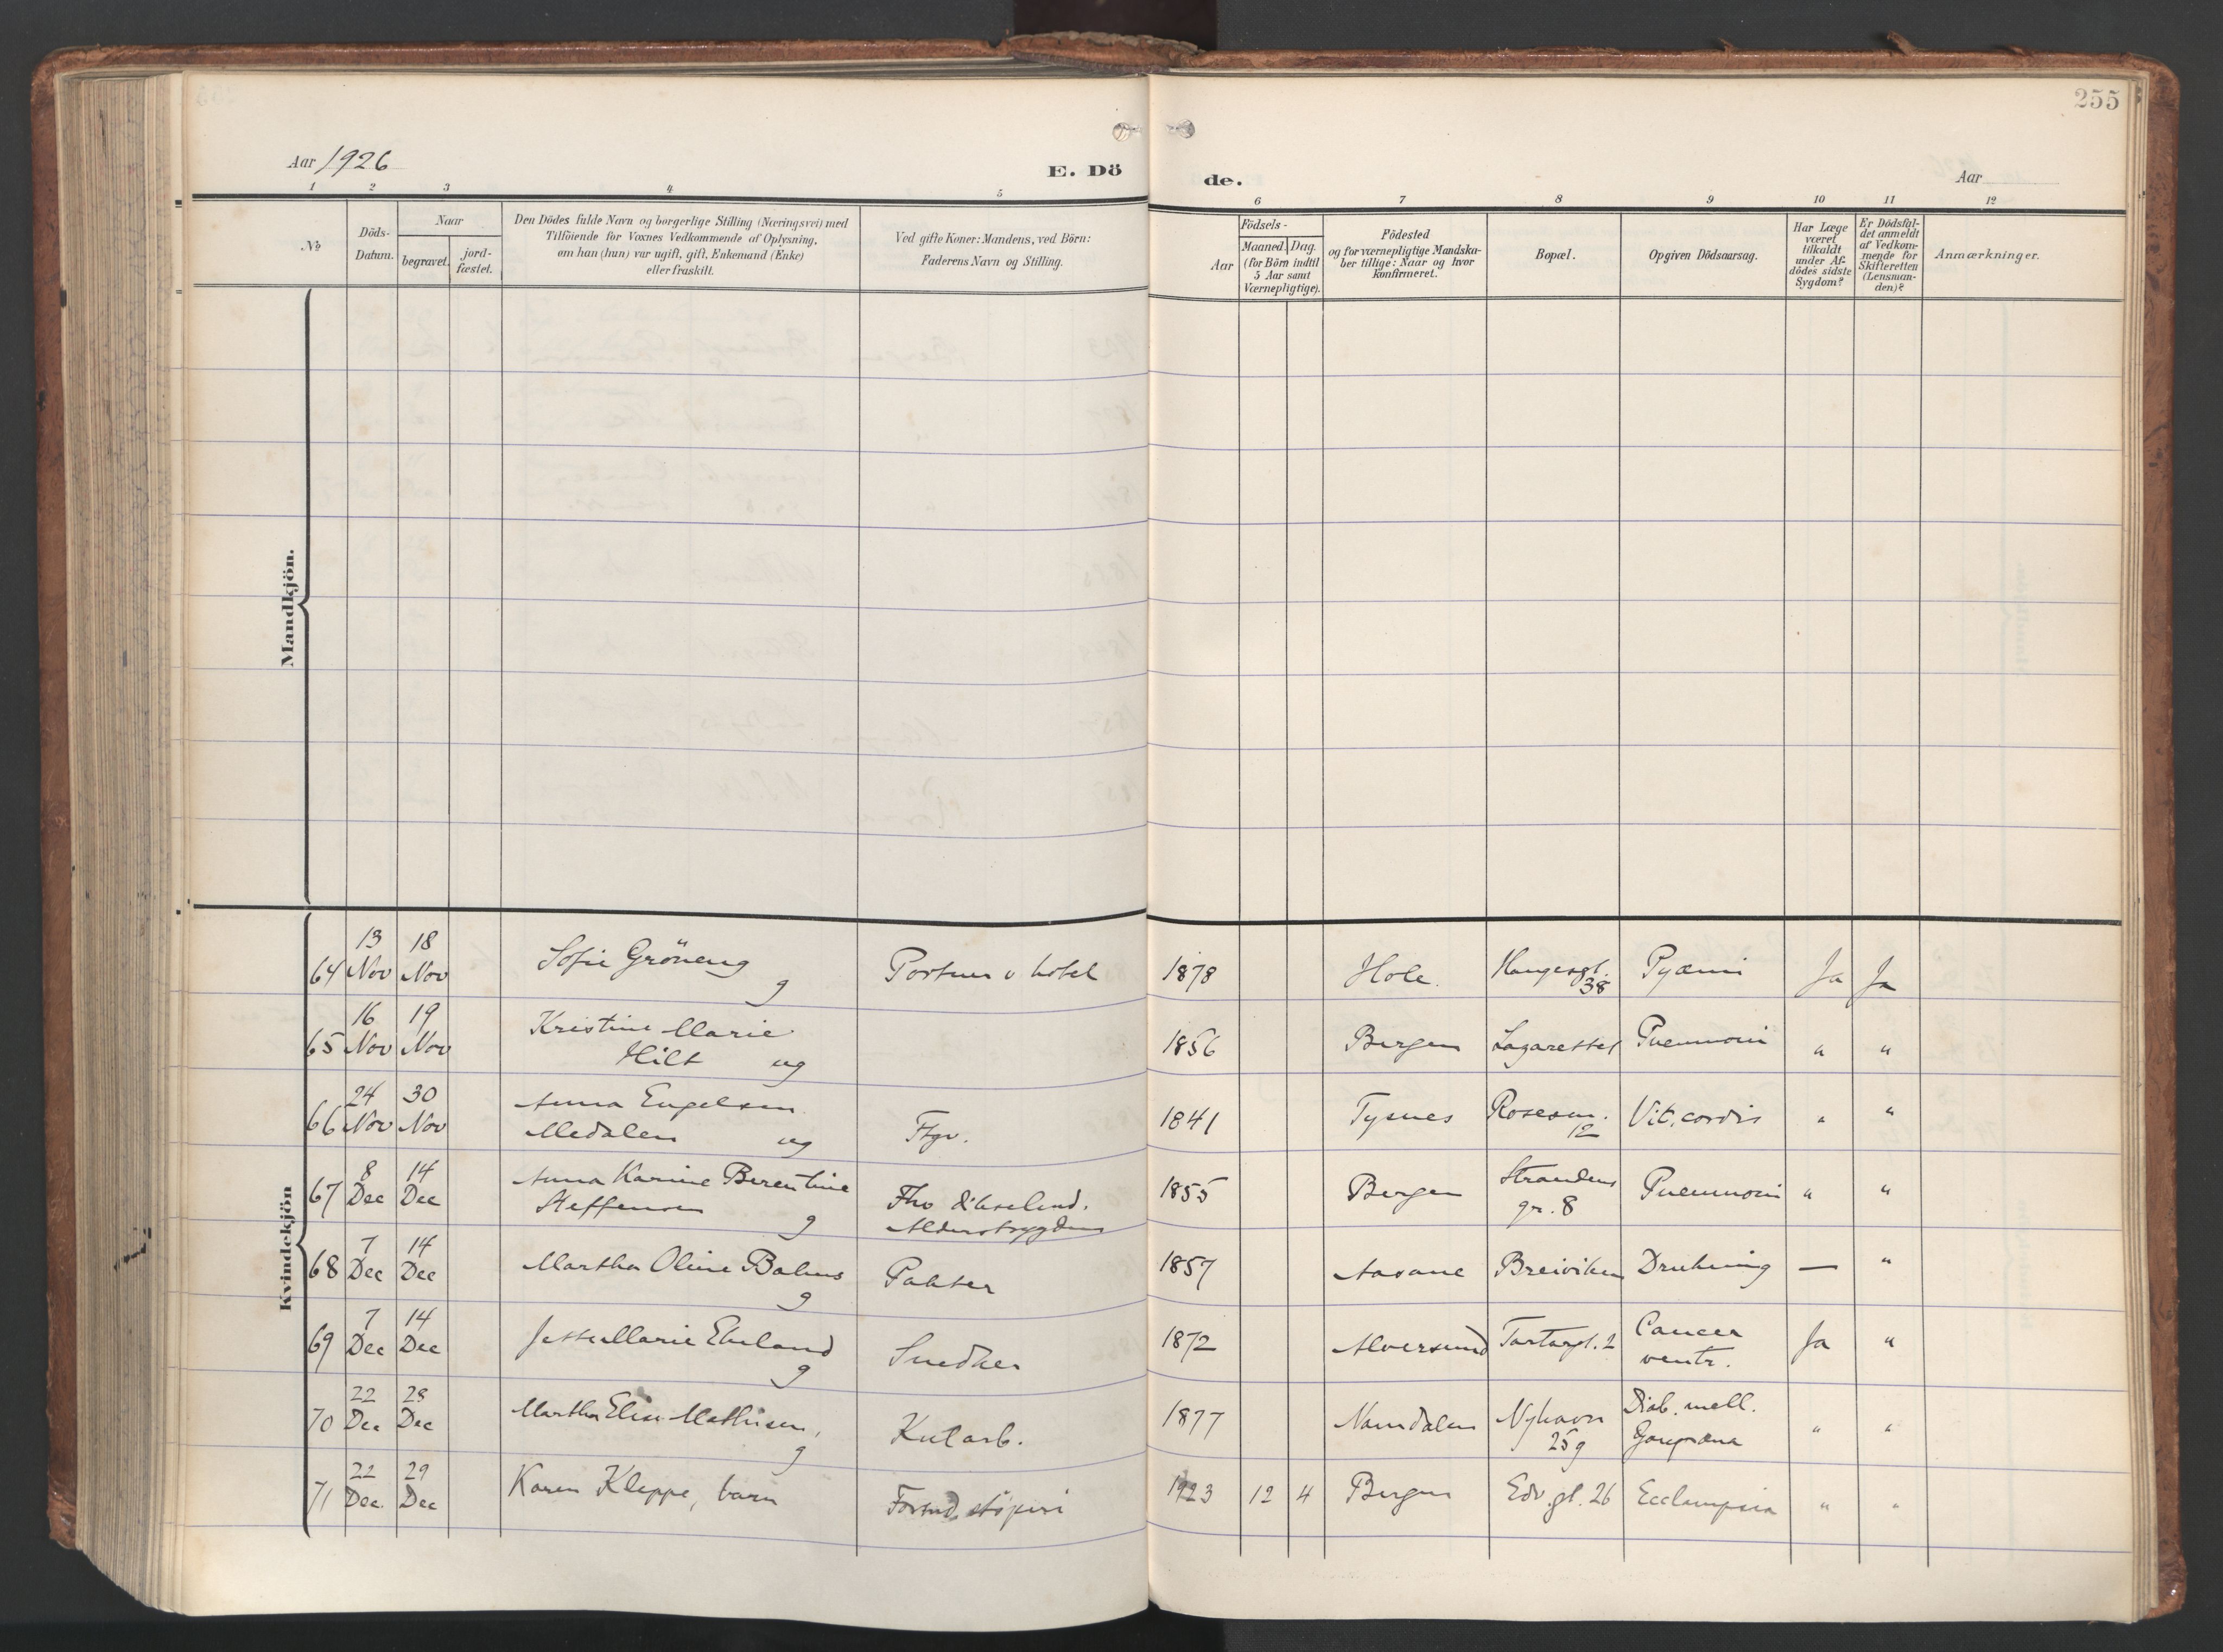 255
Aar 1926
E. Dö
de.
Aar
1 2 3 4 5 6 7 8 9 10 11 12
№
Döds-
Datum.
Naar
begravet.
jord-
fæstet.
Den Dödes fulde Navn og borgerlige Stilling (Næringsvei) med
Tilföiende for Voxnes Vedkommende af Oplysning,
om han (hun) var ugift, gift, Enkemand (Enke)
eller fraskilt.
Ved gifte Koner: Mandens, ved Börn:
Faderens Navn og Stilling.
Födsels-
Aar
Maaned. Dag.
(for Börn indtil
5 Aar samt
Værnepligtige).
Födested
og for værnepligtige Mandska-
ber tillige: Naar og hvor
konfirmeret.
Bopæl.
Opgiven Dödsaarsag.
Har Læge
været
tilkaldt
under Af-
dödes sidste
Sygdom?
Er Dödsfal-
det anmeldt
af Vedkom-
mende for
Skifteretten
(Lensman-
den)?
Anmærkninger.
Mandkjön.
Kvindekjön
64 13 Nov 18 Nov Sofie Gröneng g Portner v hotel 1878 Hole. Haugesgt. 38 Pyæmi Ja Ja
65 16 Nov 19 Nov Kristine Marie
Hilt ug 1856 Bergen Lazarettet Pneumoni " "
66 24 Nov 30 Nov Anna Engelsen
Medalen ug Ftgv. 1841 Tysnes Rosesm. 12 Vit. cordis " "
67 8 Dec 14 Dec Anna Karine Berentine
Steffensen g Fhv
Alderstrygden 1855 Bergen Strandens
gr. 8 Pneumoni " "
68 7 Dec 14 Dec Martha Oline Bahus g Pakter 1857 Aasane Breiviken Drukning — "
69 7 Dec 14 Dec Marie Ekeland g Snedker 1872 Alversund Tartargt. 2 Cancer
ventr. Ja "
70 22 Dec 28 Dec Martha Elise Mathisen, g Kularb. 1877 Namdalen Nyhavn
25 g Diab. mell.
" "
71 22 Dec. 29 Dec Karen Kleppe, barn Formd. støperi 1923 12 4 Bergen Edv. gt. 26 Ecclampsia " "